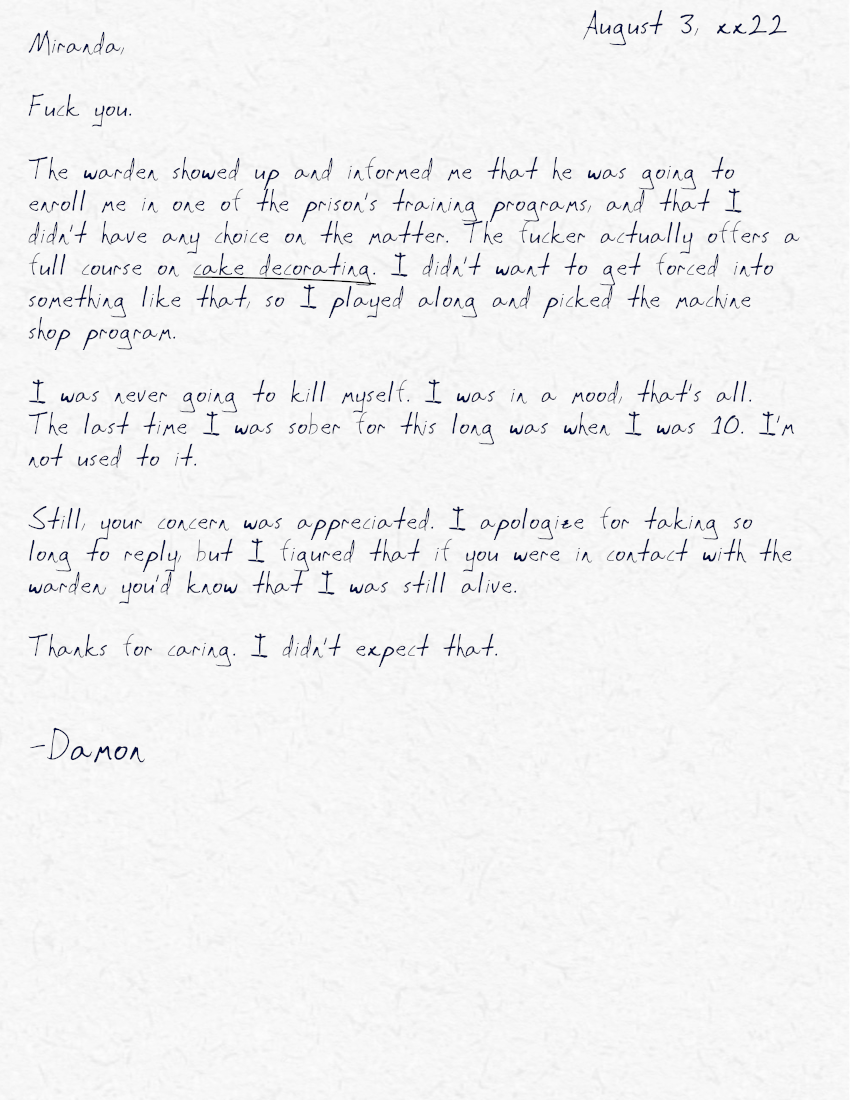 August 3, xx22
Miranda,
Fuck you.
The warden showed up and informed me that he was going to
enroll me in one of the prison's training programs, and that I
didn't have any choice on the matter. The fucker actually offers a
full course on cake decorating. I didn't want to get forced into
something like that, so I played along and picked the machine
shop program.
I was never going to kill myself. I was in a mood, that's all.
The last time I was sober for this long was when I was 10. I'm
not used to it.
Still, your concern was appreciated. I apologize for taking so
long to reply, but I figured that if you were in contact with the
warden you'd know that I was still alive.
Thanks for caring. I didn't expect that.
-Damon